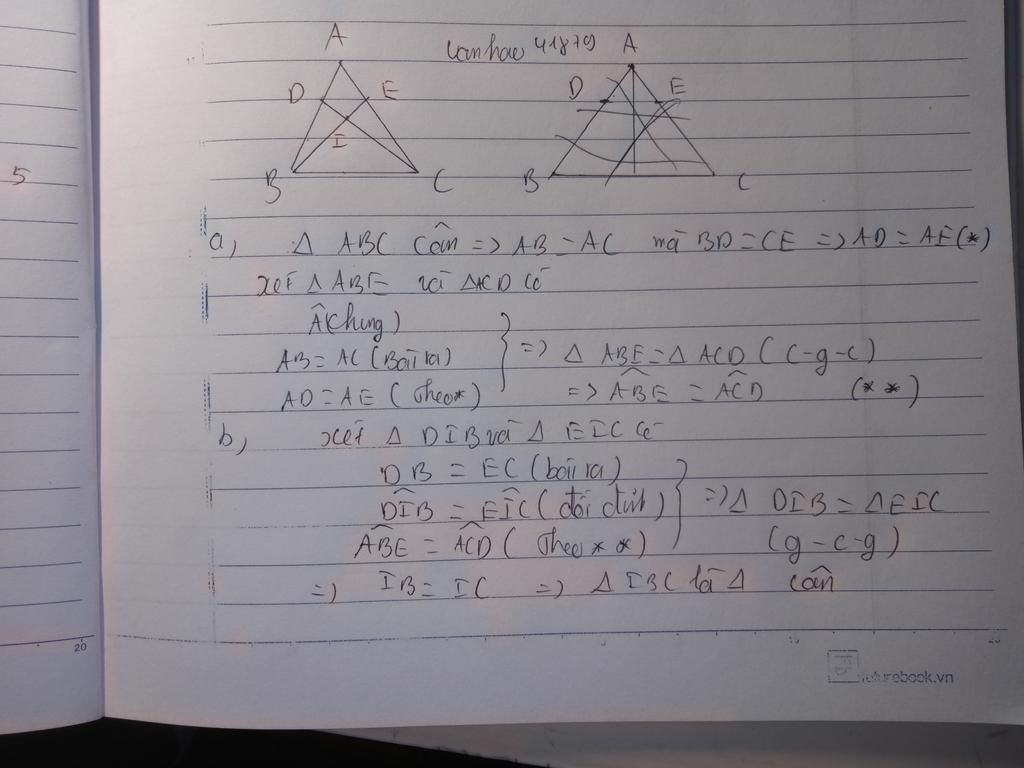 A
D E
I
B C
vanhao 41879
A
D E
B C
5
a, Δ ABC Cân => AB = AC mà BD = CE => AD = AE (*)
xét Δ ABE và ΔACD có
Â(chung)
AB = AC (Bài ra)
AD = AE (Theo*)
=> Δ ABE = Δ ACD (c-g-c)
=> ABÊ = AĈD (**)
b, xét Δ DIB và Δ EIC có
DB = EC (bài ra)
DÎB = EÎC (đối đỉnh)
ABÊ = AĈD (Theo **)
=> Δ DIB = ΔEIC
(g-c-g)
=> IB = IC => Δ IBC là Δ cân
20
15
20
futurebook.vn